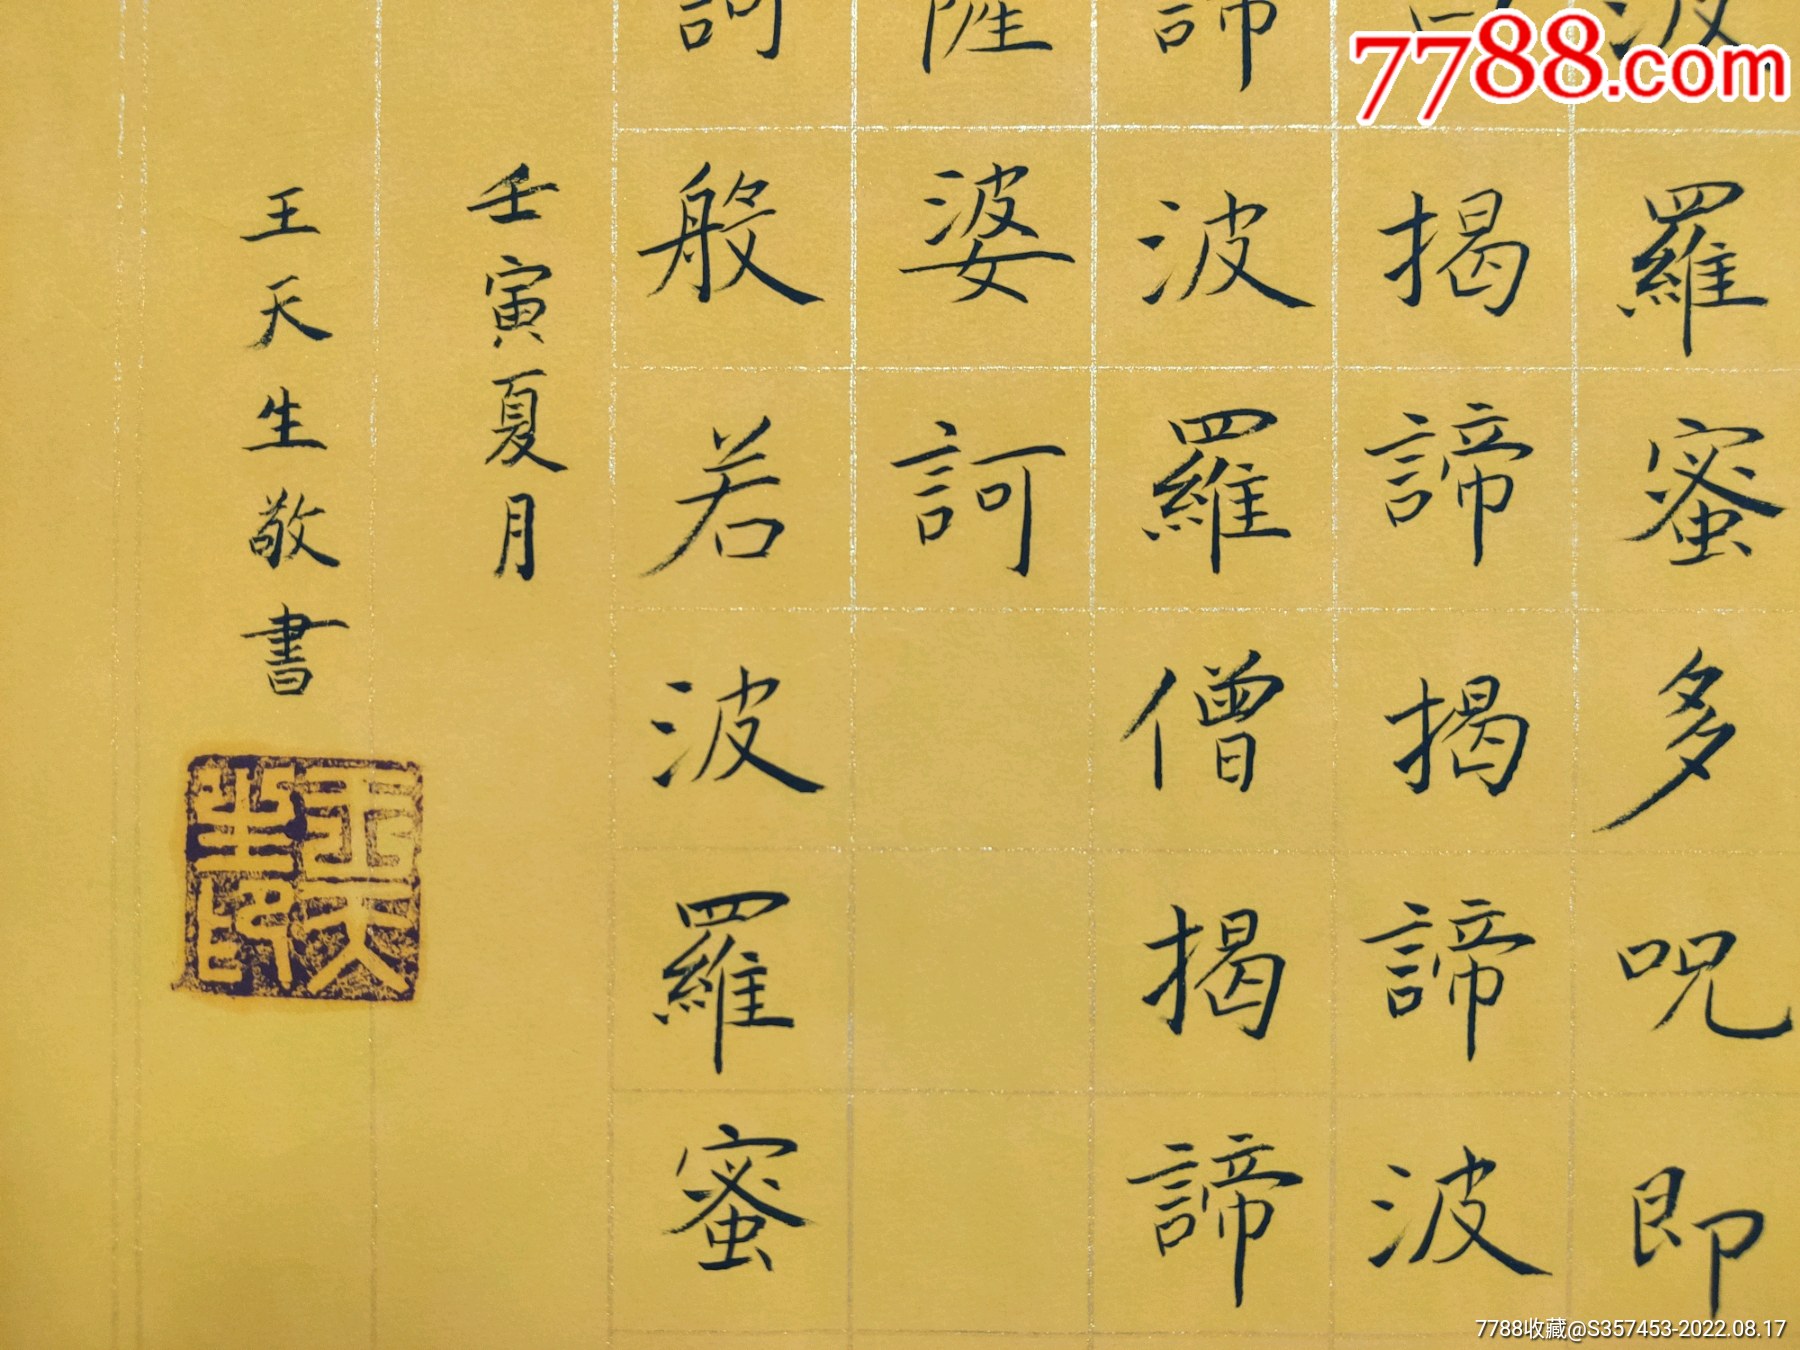 7788.com
波羅蜜多呪即
揭諦揭諦波
諦波羅僧揭諦
薩婆訶
訶般若波羅蜜
壬寅夏月
王天生敬書
王天生印
7788收藏@S357453-2022.08.17